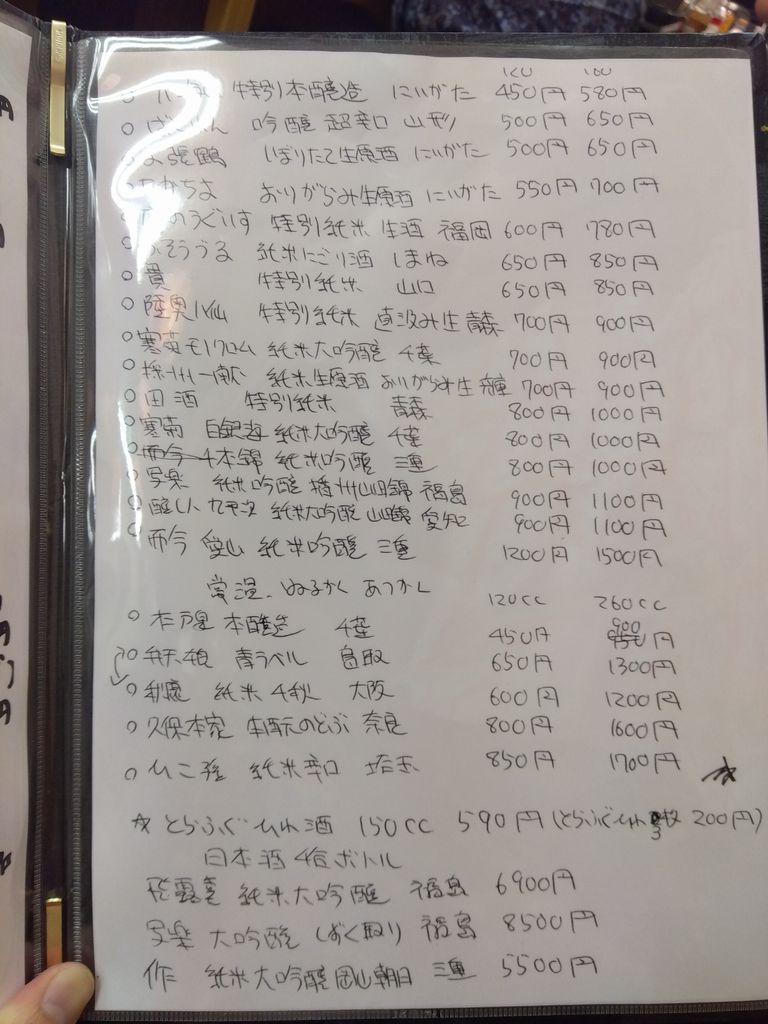 特別本醸造 にいがた 450円 580円
吟醸 超辛口 山形 500円 650円
〆張鶴 しぼりたて生原酒 にいがた 500円 650円
たかちよ おりがらみ生原酒 にいがた 550円 700円
のうぐいす 特別純米 生酒 福岡 600円 780円
純米にごり酒 しまね 650円 850円
貴 特別純米 山口 650円 850円
陸奥八仙 特別純米 直汲み生 青森 700円 900円
寒菊モノクロム 純米大吟醸 千葉 700円 900円
純米生原酒 おりがらみ生 兵庫 700円 900円
田酒 特別純米 青森 800円 1000円
寒菊 白銀海 純米大吟醸 千葉 800円 1000円
而今 千本錦 純米吟醸 三重 800円 1000円
写楽 純米吟醸 播州山田錦 福島 900円 1100円
醸し人九平次 純米大吟醸 山田錦 愛知 900円 1100円
而今 愛山 純米吟醸 三重 1200円 1500円
常温、ぬるかん あつかん 120cc 260cc
木戸泉 本醸造 千葉 450円 900円
弁天娘 青ラベル 鳥取 650円 1300円
秋鹿 純米 千秋 大阪 600円 1200円
久保本家 生酛のどぶ 奈良 800円 1600円
ひこ孫 純米辛口 埼玉 850円 1700円
☆ とらふぐひれ酒 150cc 590円 (とらふぐひれ3枚 200円)
日本酒4合ボトル
飛露喜 純米大吟醸 福島 6900円
写楽 大吟醸 しずく取り 福島 8500円
作 純米大吟醸岡山朝日 三重 5500円